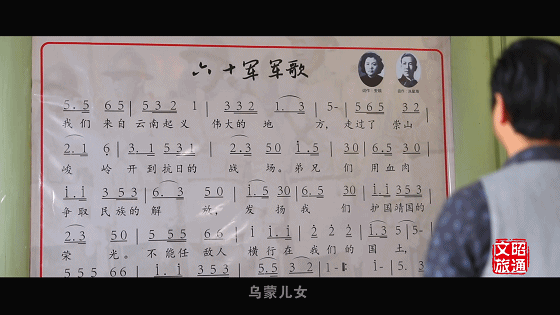 六十军军歌
5.5 65 | 532 1 | 332 1.3 | 5- | 565 32
我们来自云南起义伟大的地方,走过了崇山
2.1 6 | 3.1 531 | 2.3 50 | i.5 30 | 6.5 30
峻岭开到抗日的战场。弟兄们用血肉
i.i 353 | 6.3 50 | i.5 30 | 6.5 30 | i.i 353
争取民族的解放,发扬我们护国靖国的
2.3 50 | 5 55 66 | i i.i | 2 2 2 | i.i 35 | 5-
荣光。不能任敌人横行在我们的国土,
555 66 | i.i 353 | 5.5 32 | 1-
乌蒙儿女
昭通
文旅